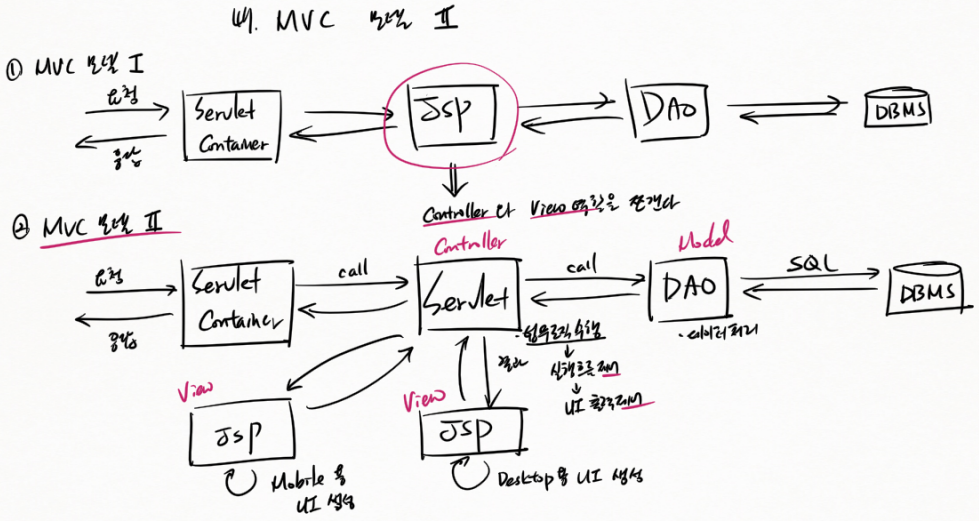 MVC 모델 II
① MVC 모델 I
요청
응답
Servlet
Container
JSP
DAO
DBMS
Controller와 View 역할을
② MVC 모델 II
Controller
Model
요청
응답
Servlet
Container
call
Servlet
call
DAO
SQL
DBMS
· 업무로직 수행
↓
실행흐름 제어
↓
UI 출력제어
· 데이터처리
결과
View
JSP
Mobile용
UI 생성
View
JSP
Desktop용 UI 생성